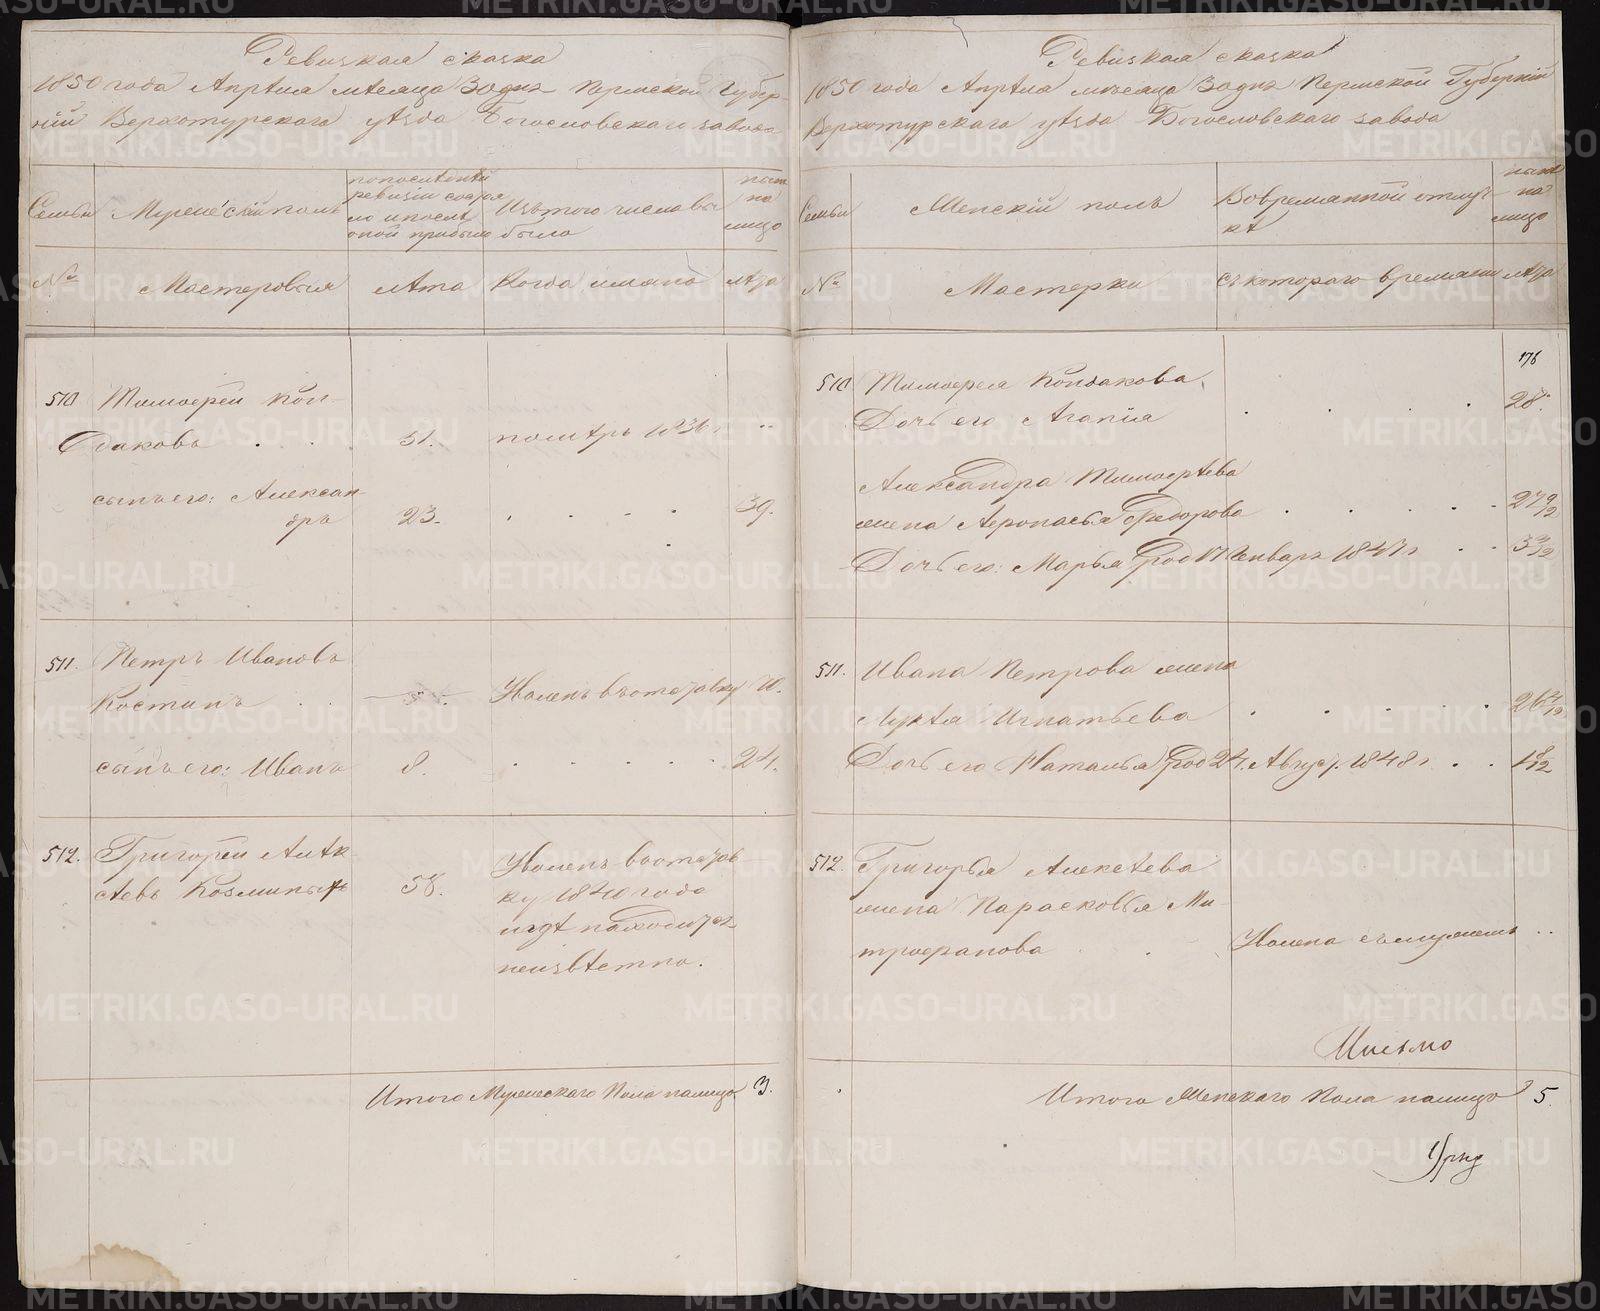 Ревизкая сказка
1850 года Апрѣля мѣсяца 30 дня Пермской Губер-
нiй Верхотурскаго уѣзда Богословскаго завода
Семьи
Мужескiй полъ
по последнѣй
ревизiи состоя
ло и после
оной прибыло
Изъ того числа вы
было
ныне
на
лицо
№
Мастеровыя
лѣта
Когда имяно
лѣта
510
Тимофей Кон-
даковъ . .
51.
помѣръ 1836 г
сынъ его: Алексан-
дръ
23.
39.
511.
Петръ Ивановъ
Костинъ . .
Уволенъ въ отставку
сынъ его: Иванъ
8.
24.
512.
Григорей Алѣк
сѣевъ Козминыхъ
58.
Уволенъ въ отстав
ку 1840 года
игдѣ находится
неизвѣстно.
Итого Мужескаго Пола налицо 3.
Ревизкая сказка
1850 года Апрѣля мѣсяца 30 дня Пермской Губернiй
Верхотурскаго уѣзда Богословскаго завода
Семьи
Женскiй полъ
Во временной отлуч
кѣ
ныне
на
лицо
№
Мастерки
съ котораго времяни
лѣта
176
510
Тимофея Кондакова
Дочь его Агапiя
28.
Александра Тимофѣева
жена Афонасья Федорова
27 9/12
Дочь его: Марья род 17 Генваря 1847 г
3 3/12
511.
Ивана Петрова жена
Лукѣя Игнатьева
26 4/12
Дочь его Наталья род 24. Август. 1848 г
1 8/12
512.
Григорья Алексѣева
жена Парасковья Ми-
трофанова
Уволена съ мужемъ
Итого Женскаго Пола налицо 5.